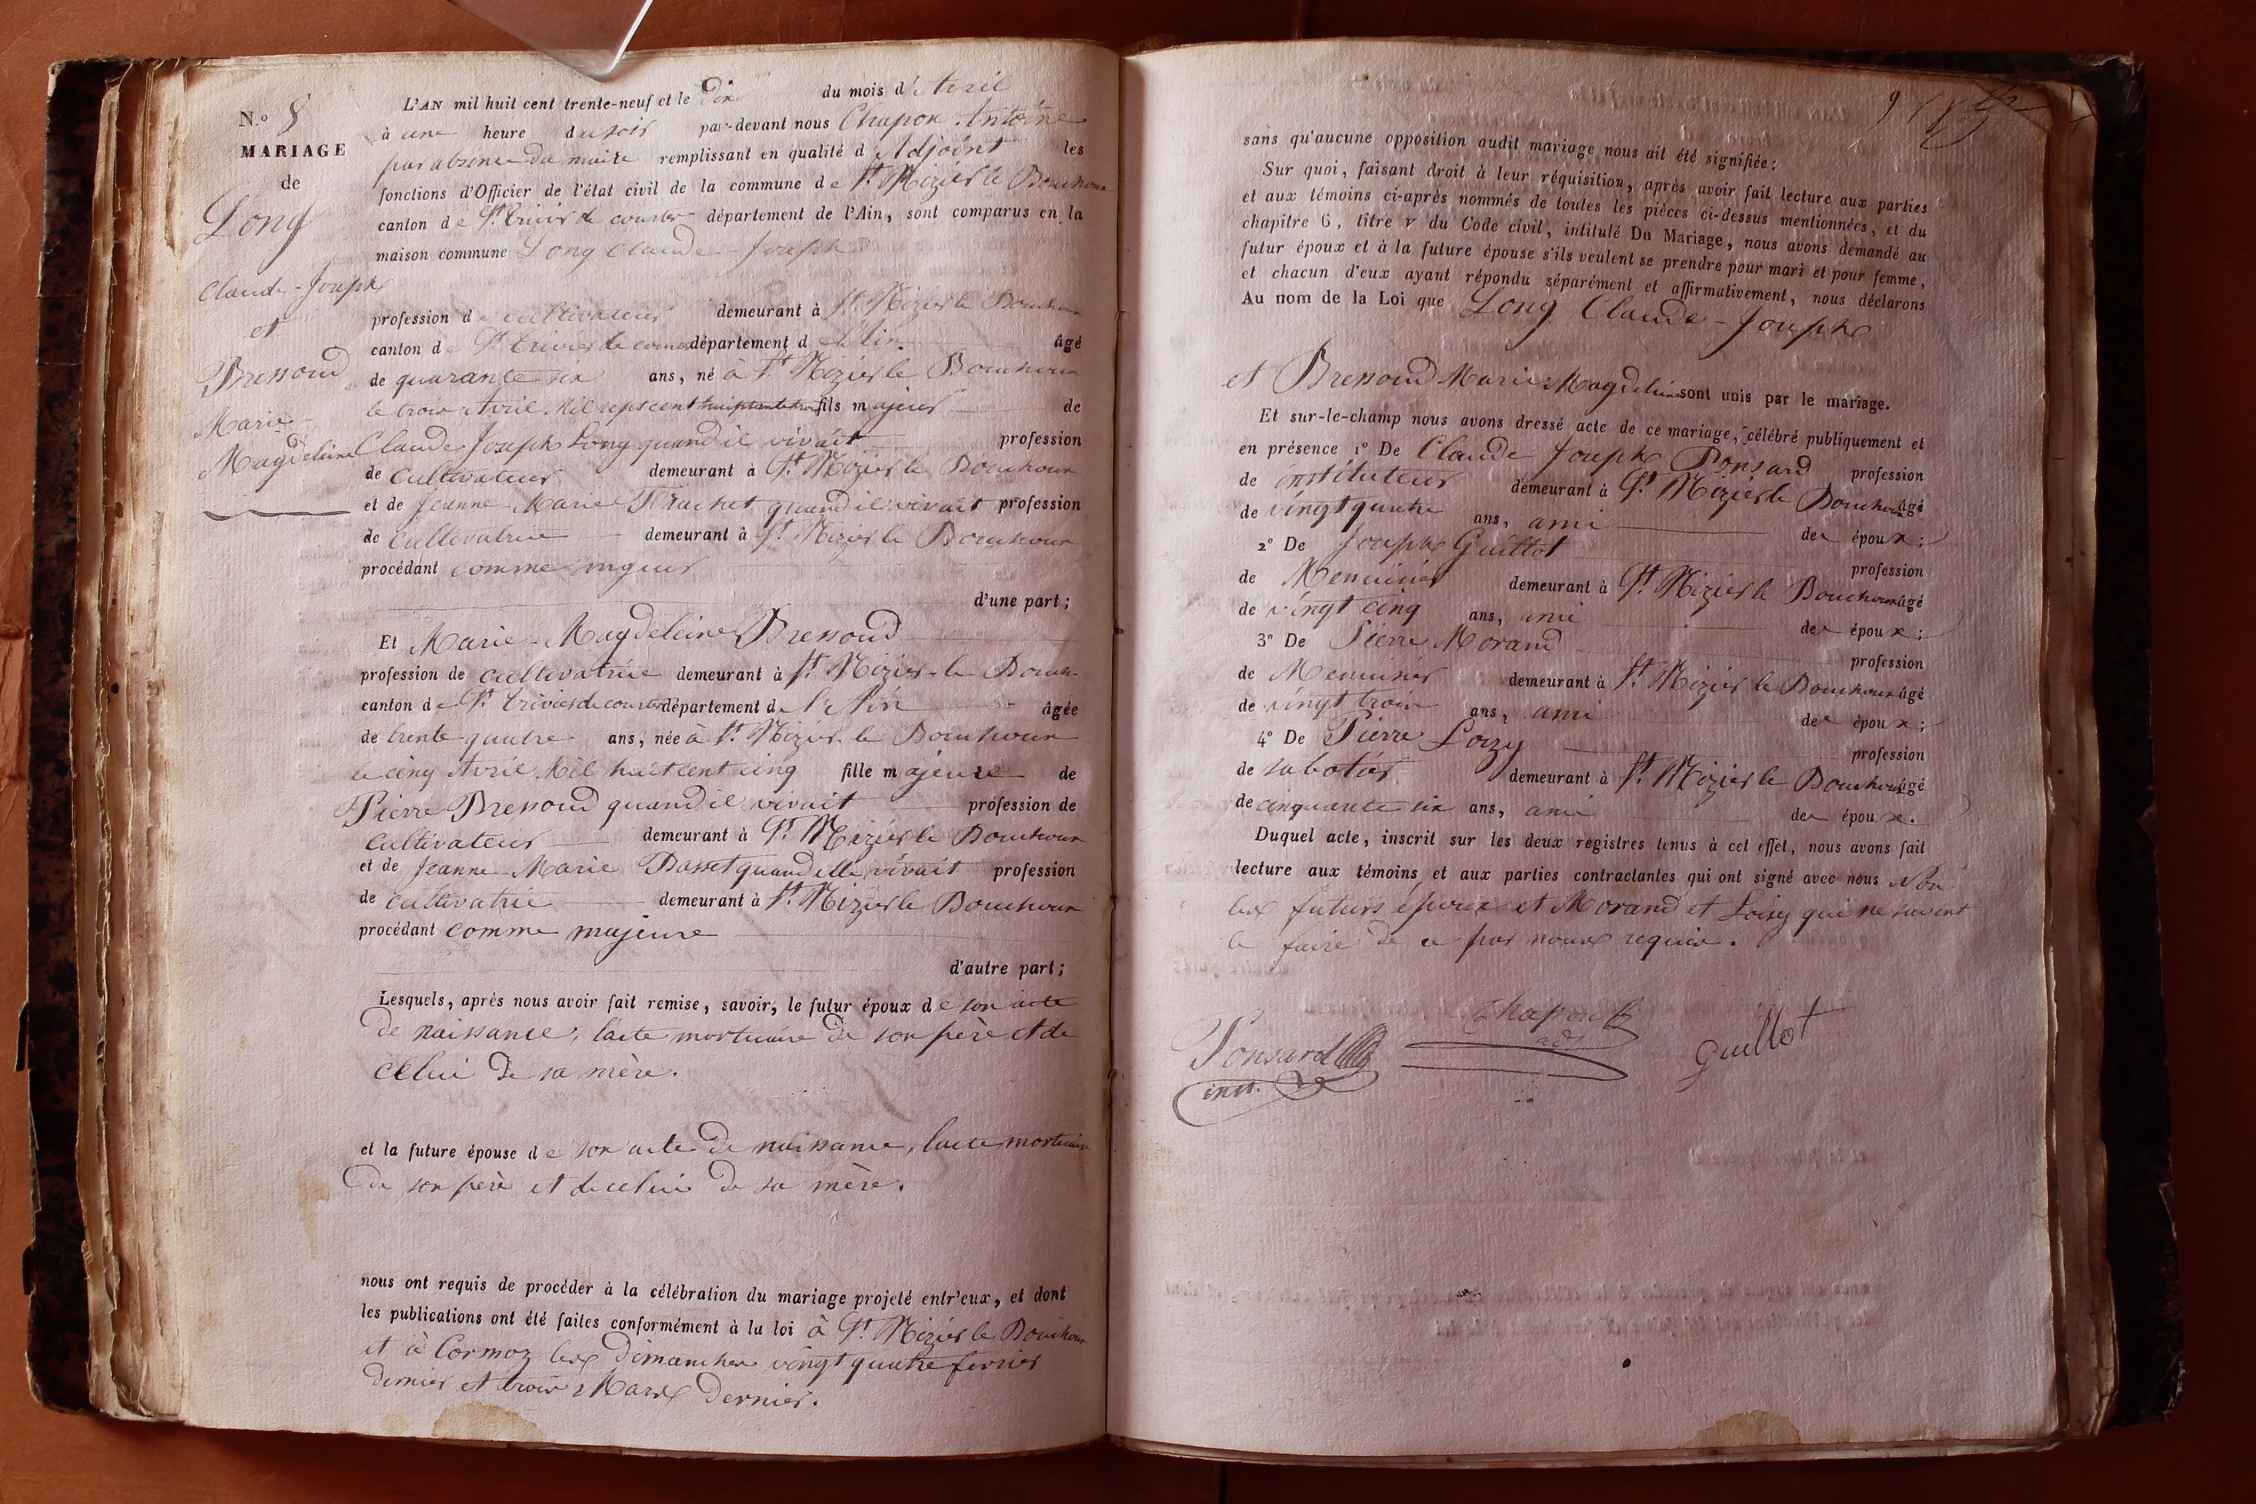 N.o 8
MARIAGE
de
Long
Claude-Joseph
et
Bressoud
Marie
Magdeleine
L'AN mil huit cent trente-neuf et le dix du mois d'Avril
à une heure du soir par-devant nous Chapon Antoine
par absence du maire remplissant en qualité d'Adjoint les
fonctions d'Officier de l'état civil de la commune de St. Nizier le Bouchoux
canton de St. trivier de courtes département de l'Ain, sont comparus en la
maison commune Long Claude Joseph
profession de cultivateur demeurant à St. Nizier le Bouchoux
canton de St. trivier de courtes département de l'Ain âgé
de quarante six ans, né à St. Nizier le Bouchoux
le trois Avril Mil sept cent fils majeur de
Claude Joseph Long quand il vivait profession
de Cultivateur demeurant à St. Nizier le Bouchoux
et de Jeanne Marie quand il vivait profession
de Cultivatrice demeurant à St. Nizier le Bouchoux
procédant comme majeur
d'une part;
Et Marie-Magdeleine Bressoud
profession de cultivatrice demeurant à St. Nizier-le-Bouch
canton de St. Trivier de courtes département de l'Ain âgée
de trente quatre ans, née à St. Nizier le Bouchoux
le cinq Avril Mil huit cent cinq fille majeure de
Pierre Bressoud quand il vivait profession de
Cultivateur demeurant à St. Nizier le Bouchoux
et de Jeanne Marie Basset quand elle vivait profession
de Cultivatrice demeurant à St. Nizier le Bouchoux
procédant comme majeure
d'autre part;
Lesquels, après nous avoir fait remise, savoir, le futur époux de son acte
de naissance, l'acte mortuaire de son père et de
celui de sa mère.
et la future épouse de son acte de naissance, l'acte mortuaire
de son père et de celui de sa mère.
nous ont requis de procéder à la célébration du mariage projeté entr'eux, et dont
les publications ont été faites conformément à la loi à St. Nizier le Bouchoux
et à Cormoz les Dimanches vingt quatre fevrier
dernier et trois Mars dernier.
9
sans qu'aucune opposition audit mariage nous ait été signifiée:
Sur quoi, faisant droit à leur réquisition, après avoir fait lecture aux parties
et aux témoins ci-après nommés de toutes les pièces ci-dessus mentionnées, et du
chapitre 6, titre v du Code civil, intitulé Du Mariage, nous avons demandé au
futur époux et à la future épouse s'ils veulent se prendre pour mari et pour femme,
et chacun d'eux ayant répondu séparément et affirmativement, nous déclarons
Au nom de la Loi que Long Claude-Joseph
et Bressoud Marie Magdeleine sont unis par le mariage.
Et sur-le-champ nous avons dressé acte de ce mariage, célébré publiquement et
en présence 1o De Claude Joseph Ponsard profession
de instituteur demeurant à St. Nizier le Bouchoux âgé
de vingt quatre ans, ami des époux;
2o De Joseph Guillot profession
de Menuisier demeurant à St. Nizier le Bouchoux âgé
de vingt cinq ans, ami des époux;
3o De Pierre Morand profession
de Menuisier demeurant à St. Nizier le Bouchoux âgé
de vingt trois ans, ami des époux;
4o De Pierre Loizy profession
de sabotier demeurant à St. Nizier le Bouchoux âgé
de cinquante six ans, ami des époux.
Duquel acte, inscrit sur les deux registres tenus à cet effet, nous avons fait
lecture aux témoins et aux parties contractantes qui ont signé avec nous Non
les futurs époux et Morand et Loisy qui ne savent
le faire de ce par nous requis.
Chapon
adj
Ponsard
inst.
Guillot